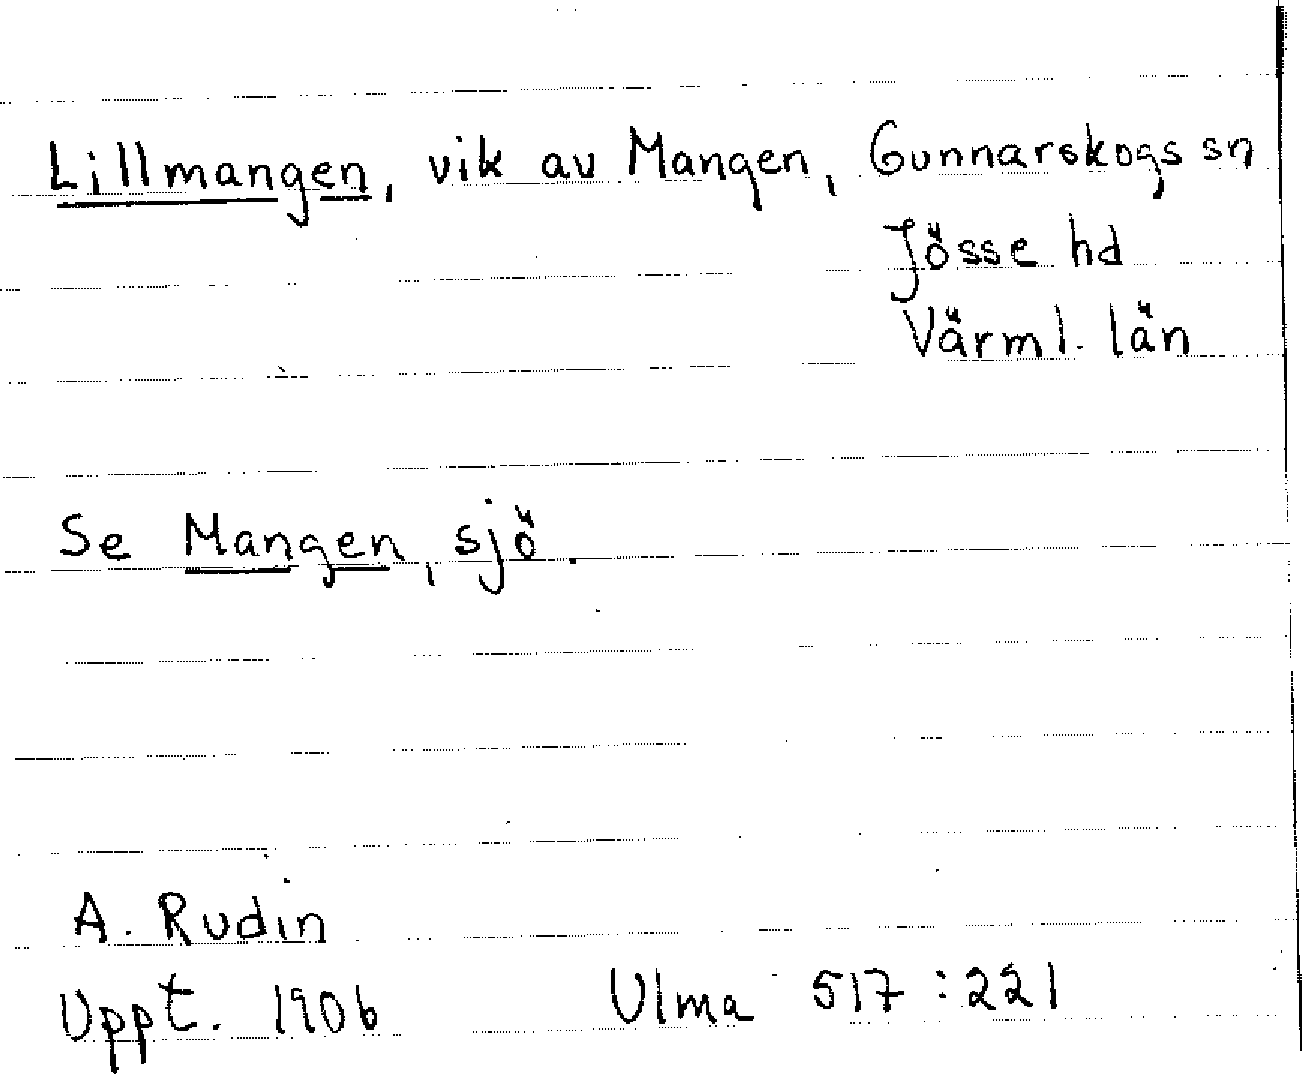 Lillmangen, vik av Mangen, Gunnarskogs sn
Jösse hd
Värml. län
Se Mangen, sjö.
A. Rudin
Uppt. 1906 Ulma 517:221